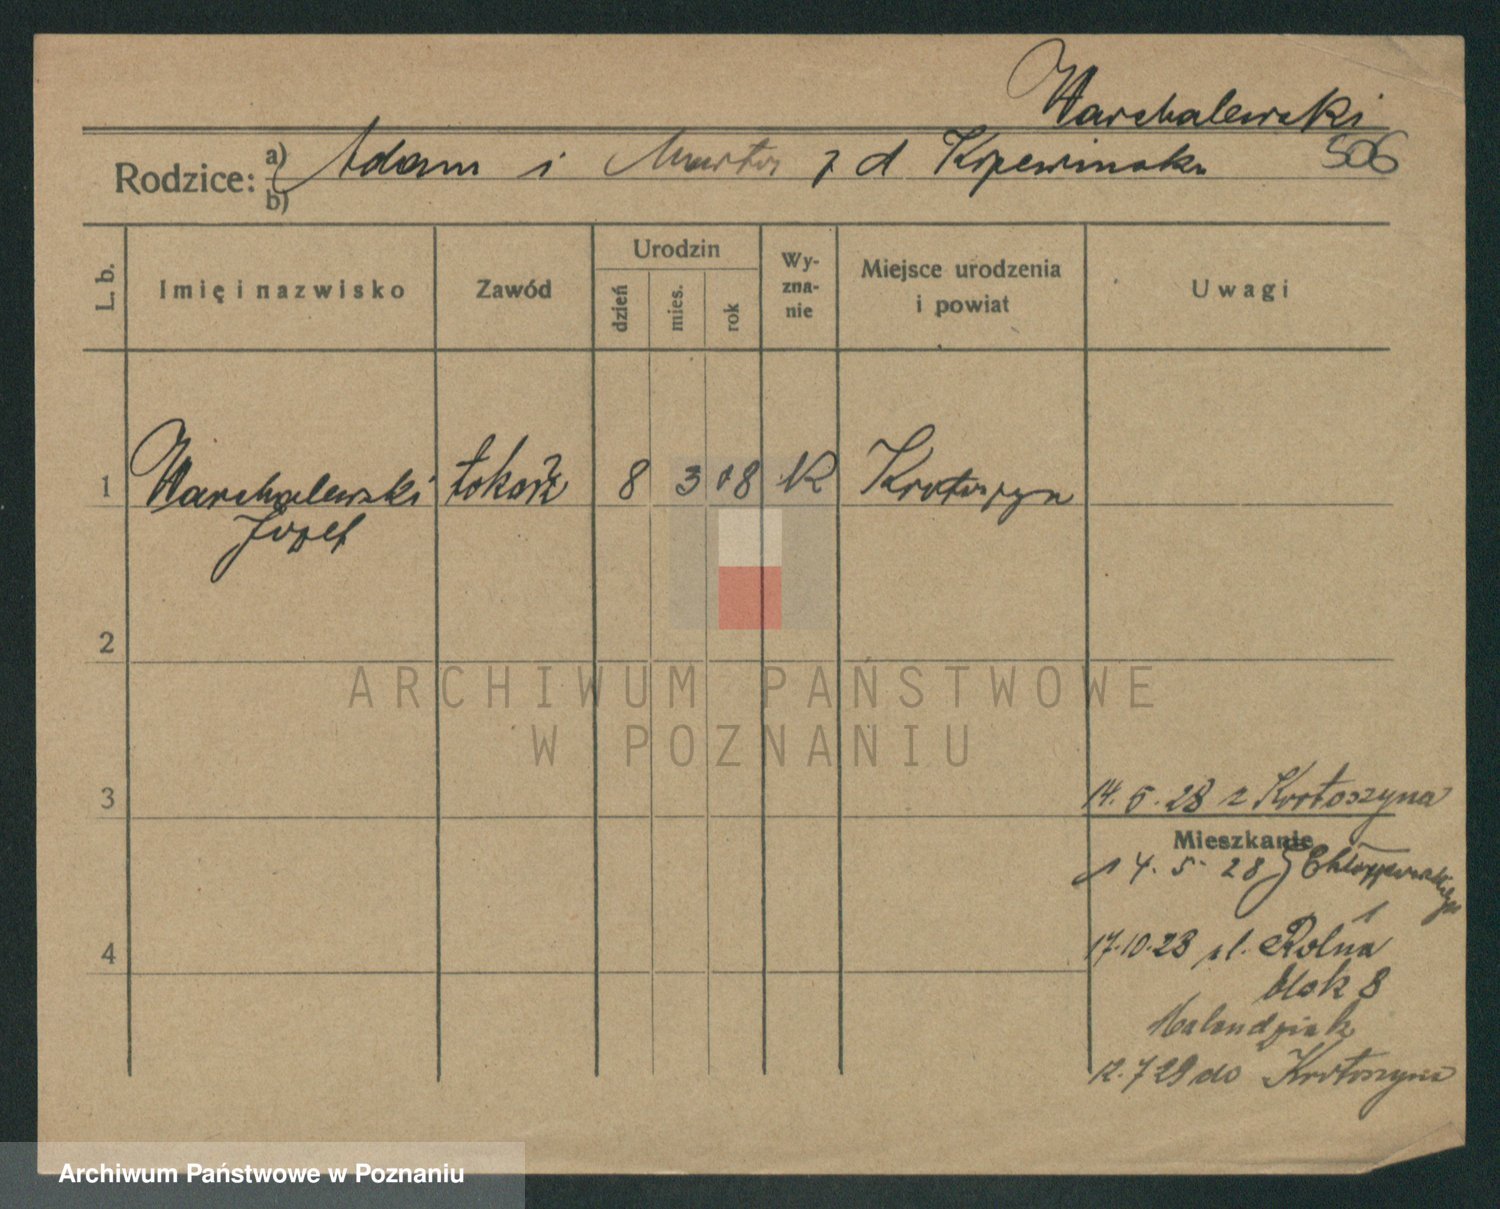 Warchalewski
506
Rodzice: a) Adam i Marta z d
b)
L. b.
Imię i nazwisko
Zawód
Urodzin
dzień
mies.
rok
Wy-
zna-
nie
Miejsce urodzenia
i powiat
Uwagi
1 Warchalewski tokarz 8 3 08 K Krotoszyn
Józef
2
ARCHIWUM PAŃSTWOWE
W POZNANIU
3
14.5.28 z Krotoszyna
Mieszkanie
14.5.28
1
17.10.28 ul. Rolna
4
blok 8
12.7 29 do Krotoszyna
Archiwum Państwowe w Poznaniu